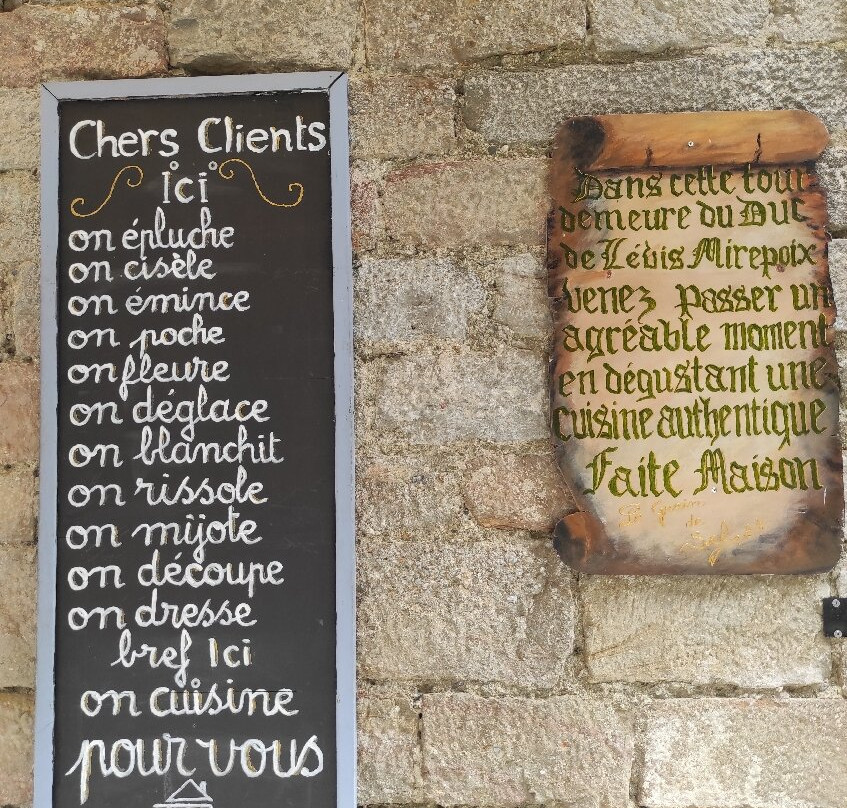 Chers Clients
Ici
on épluche
on cisèle
on émince
on poche
on fleure
on déglace
on blanchit
on rissole
on mijote
on découpe
on dresse
bref Ici
on cuisine
pour vous
Dans cette tour
demeure du Duc
de Lévis Mirepoix
venez passer un
agréable moment
en dégustant une
cuisine authentique
Faite Maison
de